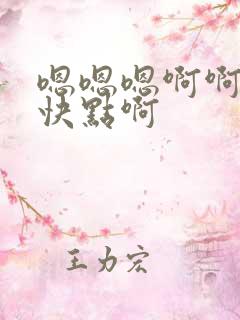 嗯嗯嗯啊啊
快點啊
王力宏